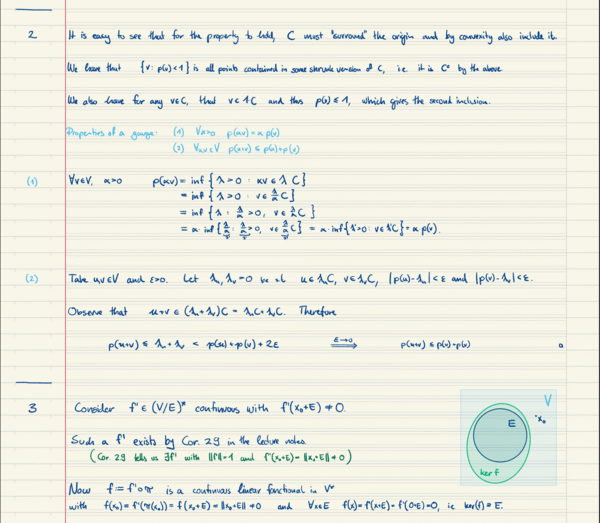 2 It is easy to see that for the property to hold, C must "surround" the origin and by convexity also include it.
We have that {v : p(v) < 1} is all points contained in some shrunk version of C, i.e. it is C° by the above.
We also have for any v∈C, that v∈1·C and thus p(v) ≤ 1, which gives the second inclusion.
Properties of a gauge: (1) ∀α>0 p(αv) = α p(v)
(2) ∀u,v∈V p(u+v) ≤ p(u)+p(v)
(1) ∀v∈V, α>0 p(αv) = inf {λ>0 : αv ∈ λ C}
= inf {λ>0 : v ∈ λ/α C}
= inf {λ : λ/α >0, v ∈ λ/α C}
= α· inf {λ/α : λ/α >0, v ∈ λ/α C} = α· inf {λ'>0 : v ∈ λ'C} = α p(v).
(2) Take u,v∈V and ε>0. Let λᵤ, λᵥ >0 be s.t. u∈λᵤC, v∈λᵥC, |p(u)-λᵤ|<ε and |p(v)-λᵥ|<ε.
Observe that u+v ∈ (λᵤ+λᵥ)C = λᵤC+λᵥC. Therefore
p(u+v) ≤ λᵤ+λᵥ < p(u)+p(v)+2ε ε→0 ⟹ p(u+v) ≤ p(u)+p(v) □
3 Consider f' ∈ (V/E)* continuous with f'(x₀+E) ≠ 0.
Such a f' exists by Cor. 29 in the lecture notes.
(Cor. 29 tells us ∃f' with ‖f'‖=1 and f'(x₀+E) = ‖x₀+E‖ ≠ 0)
Now f := f'∘π is a continuous linear functional in V*
with f(x₀) = f'(π(x₀)) = f'(x₀+E) = ‖x₀+E‖ ≠ 0 and ∀x∈E f(x) = f'(x+E) = f'(0+E) = 0, ie ker(f) ⊇ E.
V
E
x₀
ker f